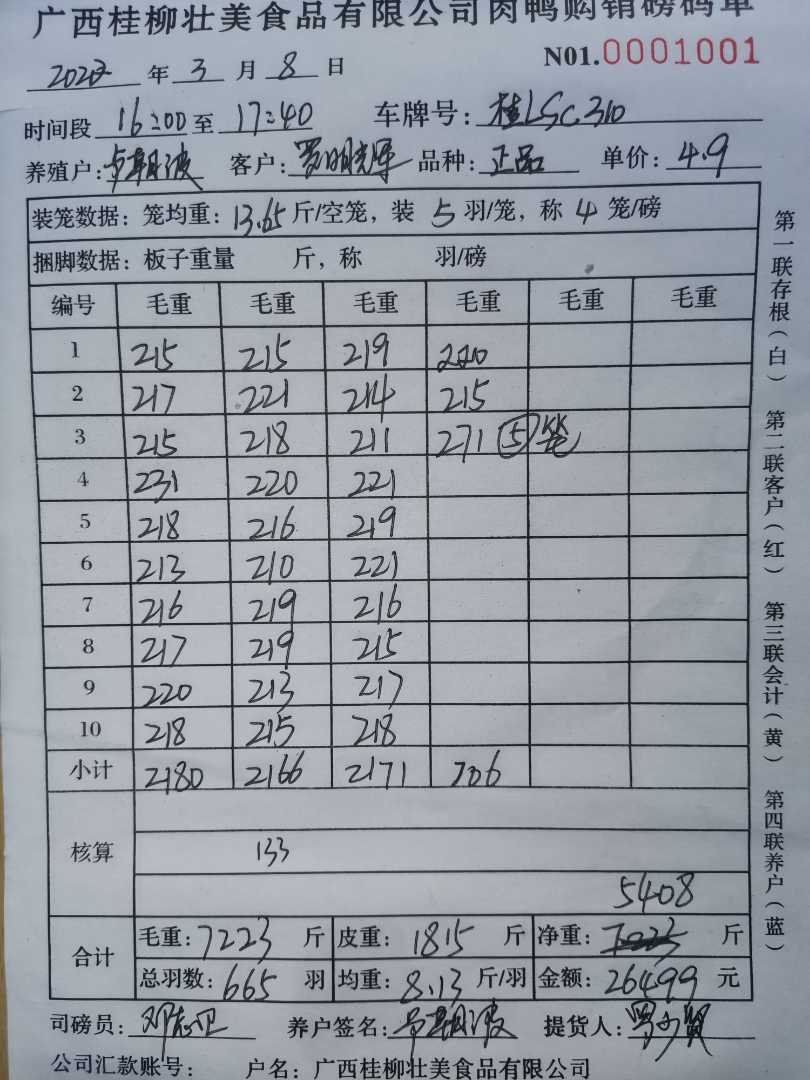 广西桂柳壮美食品有限公司肉鸭购销磅码单
2022 年 3 月 8 日 N01.0001001
时间段 16:00 至 17:40 车牌号: 桂LSC310
养殖户: 客户: 罗明光军 品种: 正品 单价: 4.9
装笼数据: 笼均重: 13.65 斤/空笼, 装 5 羽/笼, 称 4 笼/磅
捆脚数据: 板子重量 斤, 称 羽/磅
编号 毛重 毛重 毛重 毛重 毛重 毛重
1 215 215 219 220
2 217 221 214 215
3 215 218 211 271 5笼
4 231 220 221
5 218 216 219
6 213 210 221
7 216 219 216
8 217 219 215
9 220 213 217
10 218 215 218
小计 2180 2166 2171 706
核算
133
5408
合计 毛重: 7223 斤 皮重: 1815 斤 净重: 7223 斤
总羽数: 665 羽 均重: 8.13 斤/羽 金额: 26499 元
司磅员: 邓志卫 养户签名: 提货人:
公司汇款账号: 户名: 广西桂柳壮美食品有限公司
第一联存根(白) 第二联客户(红) 第三联会计(黄) 第四联养户(蓝)